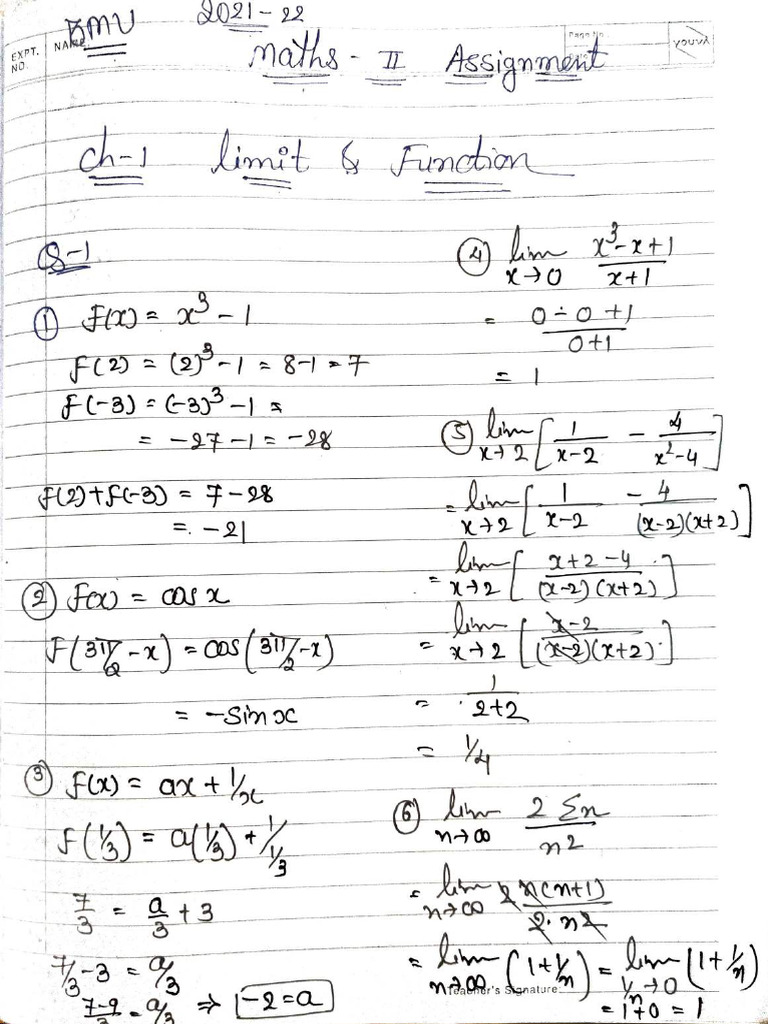 KMV 2021-22
EXPT. NO. NAME
Page No.
YOUVA
Maths - II Assignment
Ch-1 limit & Function
Q-1
① f(x) = x³ - 1
f(2) = (2)³ - 1 = 8-1 = 7
f(-3) = (-3)³ - 1 =
= -27 - 1 = -28
f(2) + f(-3) = 7 - 28
= -21
② f(x) = cos x
f(3π/2 - x) = cos(3π/2 - x)
= -sin x
③ f(x) = ax + 1/x
f(1/3) = a(1/3) + 1/1/3
7/3 = a/3 + 3
7/3 - 3 = a/3
7-9/3 = a/3 ⇒ -2 = a
④ lim x→0 x³-x+1/x+1
= 0-0+1/0+1
= 1
⑤ lim x→2 [1/x-2 - 4/x²-4]
= lim x→2 [1/x-2 - 4/(x-2)(x+2)]
= lim x→2 [x+2-4/(x-2)(x+2)]
= lim x→2 [x-2/(x-2)(x+2)]
= 1/2+2
= 1/4
⑥ lim n→∞ 2 Σn/n2
= lim n→∞ 2 n(n+1)/2·n2
= lim n→∞ (1+1/n) = lim 1/n→0 (1+1/n)
Teacher's Signature:
= 1+0 = 1